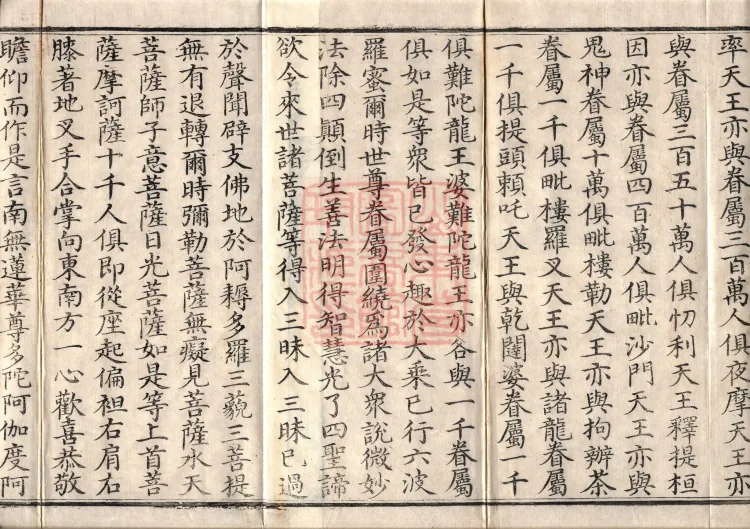 率天王亦與眷屬三百萬人俱夜摩天王亦
與眷屬三百五十萬人俱忉利天王釋提桓
因亦與眷屬四百萬人俱毗沙門天王亦與
鬼神眷屬十萬俱毗樓勒天王亦與拘辦茶
眷屬一千俱毗樓羅叉天王亦與諸龍眷屬
一千俱提頭賴吒天王與乾闥婆眷屬一千
俱難陀龍王婆難陀龍王亦各與一千眷屬
俱如是等衆皆已發心趣於大乘已行六波
羅蜜爾時世尊眷屬圍繞為諸大衆說微妙
法除四顛倒生善法明得智慧光了四聖諦
欲令來世諸菩薩等得入三昧入三昧已過
於聲聞辟支佛地於阿耨多羅三藐三菩提
無有退轉爾時彌勒菩薩無癡見菩薩水天
菩薩師子意菩薩日光菩薩如是等上首菩
薩摩訶薩十千人俱即從座起偏袒右肩右
膝著地叉手合掌向東南方一心歡喜恭敬
瞻仰而作是言南無蓮華尊多陀阿伽度阿